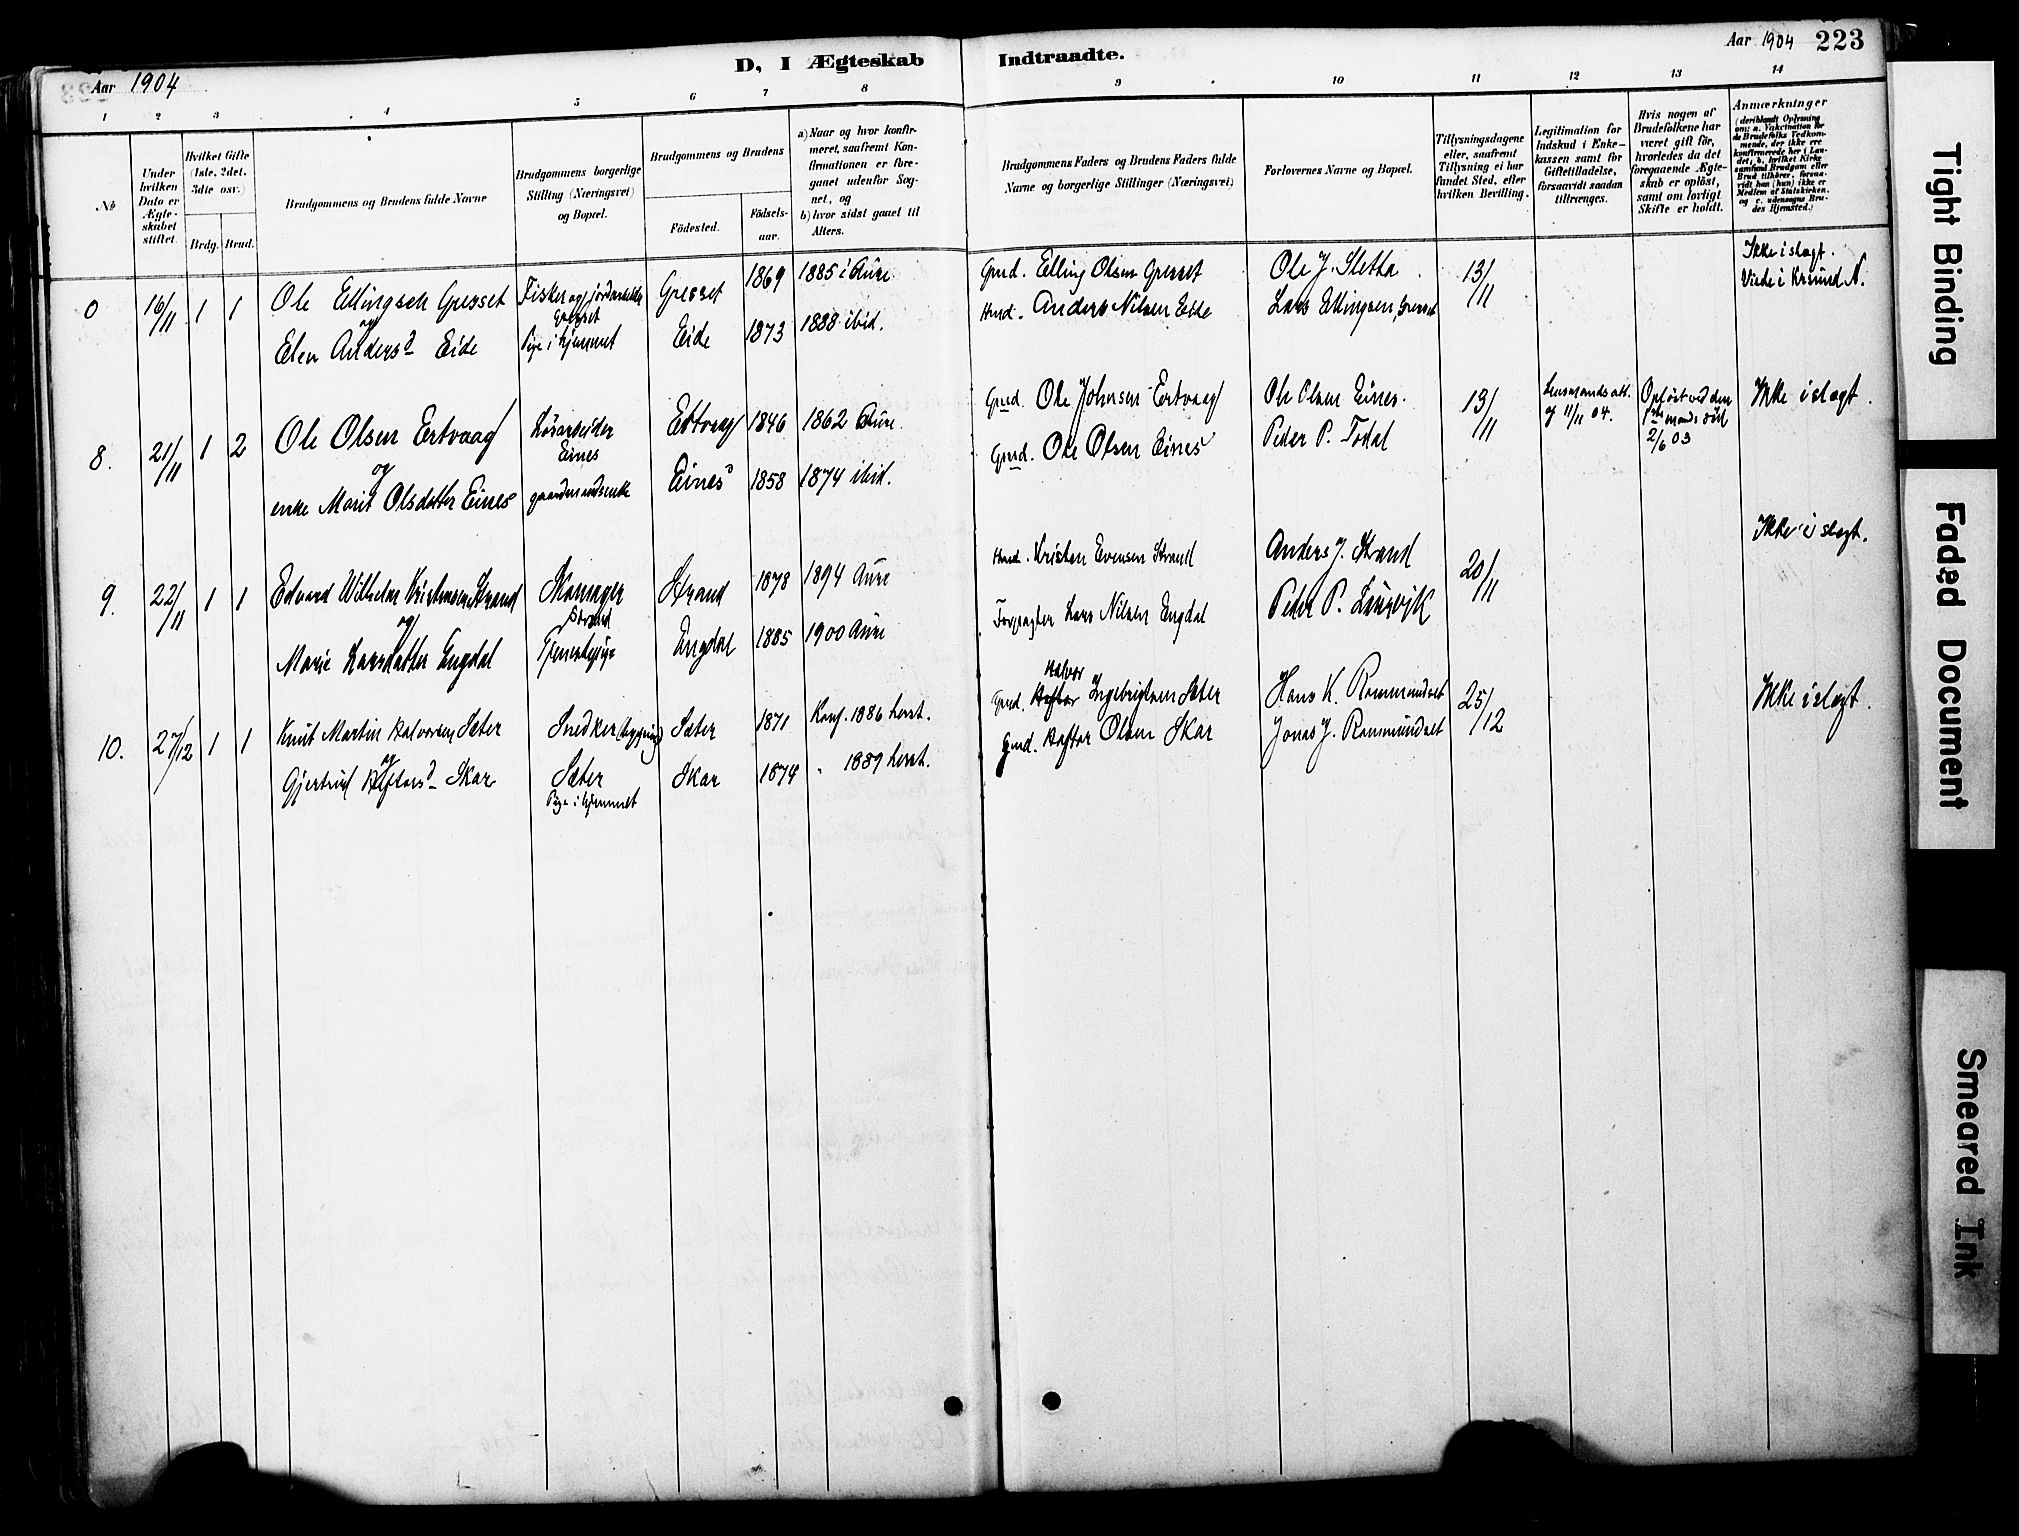 Aar 1904
D, I Ægteskab Indtraadte.
Aar 1904 223
1 2 3 4 5 6 7 8 9 10 11 12 13 14
No
Under hvilken Dato er Ægteskabet stiftet.
Hvilket Gifte (1ste, 2det, 3die osv.)
Brdg. Brud.
Brudgommens og Brudens fulde Navne
Brudgommens borgerlige Stilling (Næringsvei) og Bopæl.
Brudgommens og Brudens
Födested.
Födsels-aar.
a) Naar og hvor konfirmeret, saafremt Konfirmationen er foregaaet udenfor Sognet, og
b) hvor sidst gaaet til Alters.
Brudgommens Faders og Brudens Faders fulde Navne og borgerlige Stillinger (Næringsvei)
Forlovernes Navne og Bopæl.
Tillysningsdagene eller, saafremt Tillysning ei har fundet Sted, efter hvilken Bevilling.
Legitimation for Indskud i Enkekassen samt for Giftetilladelse, forsaavidt saadan tiltrænges.
Hvis nogen af Brudefolkene har været gift för, hvorledes da det foregaaende Ægteskab er oplöst, samt om lovligt Skifte er holdt.
Anmærkninger (deriblandt Oplysning om: a. Vakcination for de Brudefolks Vedkommende, der ikke ere konfirmerede her i Landet; b. hvilket Kirkesamfund Brudgom eller Brud tilhörer, forsaavidt han (hun) ikke er Medlem af Statskirken, og c. udensogns Brudes Hjemsted.)
0 16/11 1 1 Ole Ellingsen Gresset Fisker og jordarbeider Gresset Gresset 1869 1885 i Aure Gmd. Elling Olsen Gresset Ole J. Sletta 13/11 Ikke i slægt.
og
Elen Andersd Eide Pige i hjemmet Eide 1873 1888 ibid. Hmd. Anders Nilsen Eide Lars Ellingsen, Gresset Viede i Krsund N.
8. 21/11 1 2 Ole Olsen Ertvaag Løsarbeider Eines Ertvaag 1846 1862 Aure. Gmd. Ole Johnsen Ertvaag Ole Olsen Eines. 13/11 Lensmandsatt. af 11/11 04. Opløst ved den mands död 2/6 03 Ikke i slægt.
og
enke Marit Olsdatter Eines gaardmandsenke Eines 1858 1874 ibid. Gmd. Ole Olsen Eines Peder P. Todal
9. 22/11 1 1 Edvard Wilhelm Kristensen Strand Skomager Strand Strand 1878 1894 Aure Hmd. Kristen Evensen Strand Anders J. Strand 20/11 Ikke i slægt.
og
Marie Larsdatter Engdal Tjenestepige Engdal 1885 1900 Aure Forpagter Lars Nilsen Engdal Peder P. Leirvik
10. 27/12 1 1 Knut Martin Halvorsen Sæter Snedker (bygning) Sæter Sæter 1871 Konf. 1886 herst. Gmd. Halvor Ingebrigtsen Sæter Hans K. Rommundset 25/12 Ikke i slægt.
og
Gjertrud Haftorsd Skar Pige i hjemmet Skar 1874 " 1889 herst. Gmd. Haftor Olsen Skar Jonas J. Rommundset
Tight Binding
Faded Document
Smeared Ink